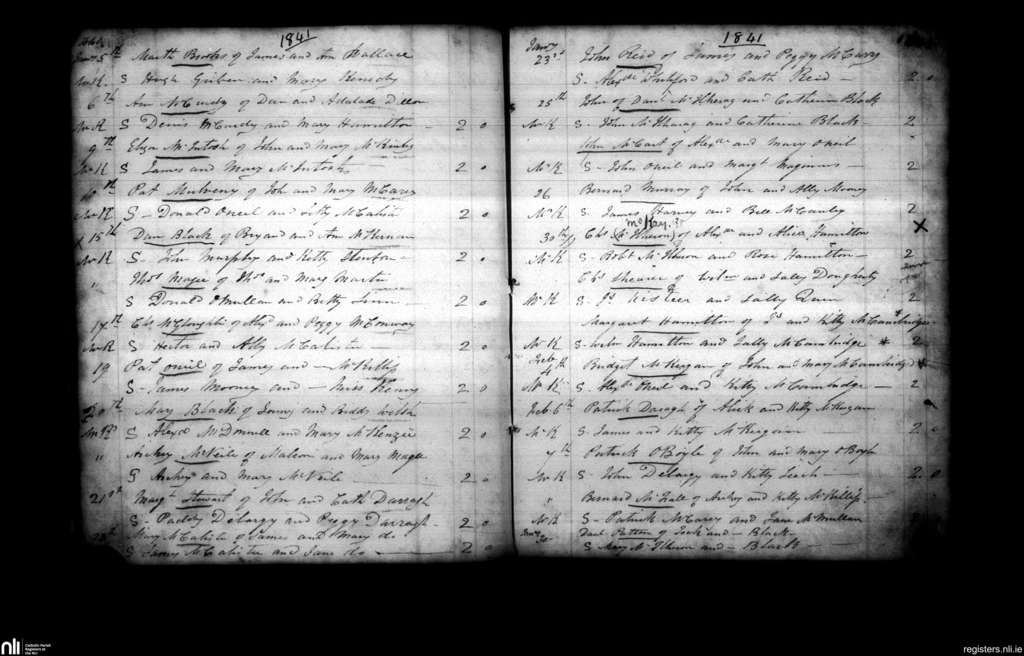 1841
5th Marth Brooks of James and Ann Wallace
S Hugh and Mary Kennedy
6th Ann McCurdy of Dan and Adalade Dillon
Mr K S Denis McCurdy and Mary Hamilton 2 0
9th Eliza McIntosh of John and Mary McKinley
Mr K S James and Mary McIntosh 2 0
10th Pat Mulveny of Joh and Mary McCarey
Mr K S - Donald Oneil and McCalia 2 0
X 15th Dan Black of Bryan and Ann McKernan
Mr K S - John Murphy and Kitty 2 0
" Thos Magee of Thos and Mary Martin
S Donald O'Mullan and Betty 2 0
17th Chs McCloughlin of Alexr and Peggy McConway
Mr K S - Hector and Ally McCalister - 2 0
19 Pat oneil of James and - McKillip
S - James Mooney and - Miss Kenny 2 0
20th Mary Black of and
Mr K S Alexd McDonnell and Mary McKenzie 2 0
" Archey McNeile of Malcom and Mary Magee
S Archey and Mary McNeile - 2 0
21st Margt Stewart of John and Cath Darragh
S - Paddy Delargy and Peggy Darragh - 2 0
Mary McCalister of James and Mary do
S James McCalister and Jane do 2 0
1841
Jany 23rd John Reid of James and Peggy McCurry
S - Alexr and Cath Reid - 2 0
25th John of Danl and Catherine Black
Mr K S - John and Catharine Black 2
John McCart of Alexr and Mary Oneil
Mr K S - John Oneil and Margt Maginnis - 2
26 Bernard Murray of John and Ally Mooney
Mr K S - James Harvey and Bell McCauley 2
McKay ?
30th Chs of Alexr and Alice Hamilton X
Mr K S - Robt and Rose Hamilton - 2
Chs Shearer of Wilm and Sally Dougherty
Mr K S - Js and Sally Quin 2
Margaret Hamilton of Js and Kitty McCambridge *
Mr K S - Wilm Hamilton and Sally McCambridge * 2
Feb 4th Bridget McKeegan of John and Mary McCambridge *
Mr K S - Alexr Oneil and Kitty McCambridge - 2
Feb 6th Patrick Daragh of Alick and Kitty McKeegan
Mr K S - James and Kitty McKeegan 2 0
7th Patrick O'Boyle of John and Mary O'Boyle
Mr K S - John Delargy and Kitty Leech - 2 0
" Bernard McFall of Archy and Kitty McKillip -
Mr K S - Patrick McCarey and Jane McMullan 2
Danl Patton of Jack and - Black -
S Mary and - Black -
nli
Catholic Parish Registers at the NLI
registers.nli.ie